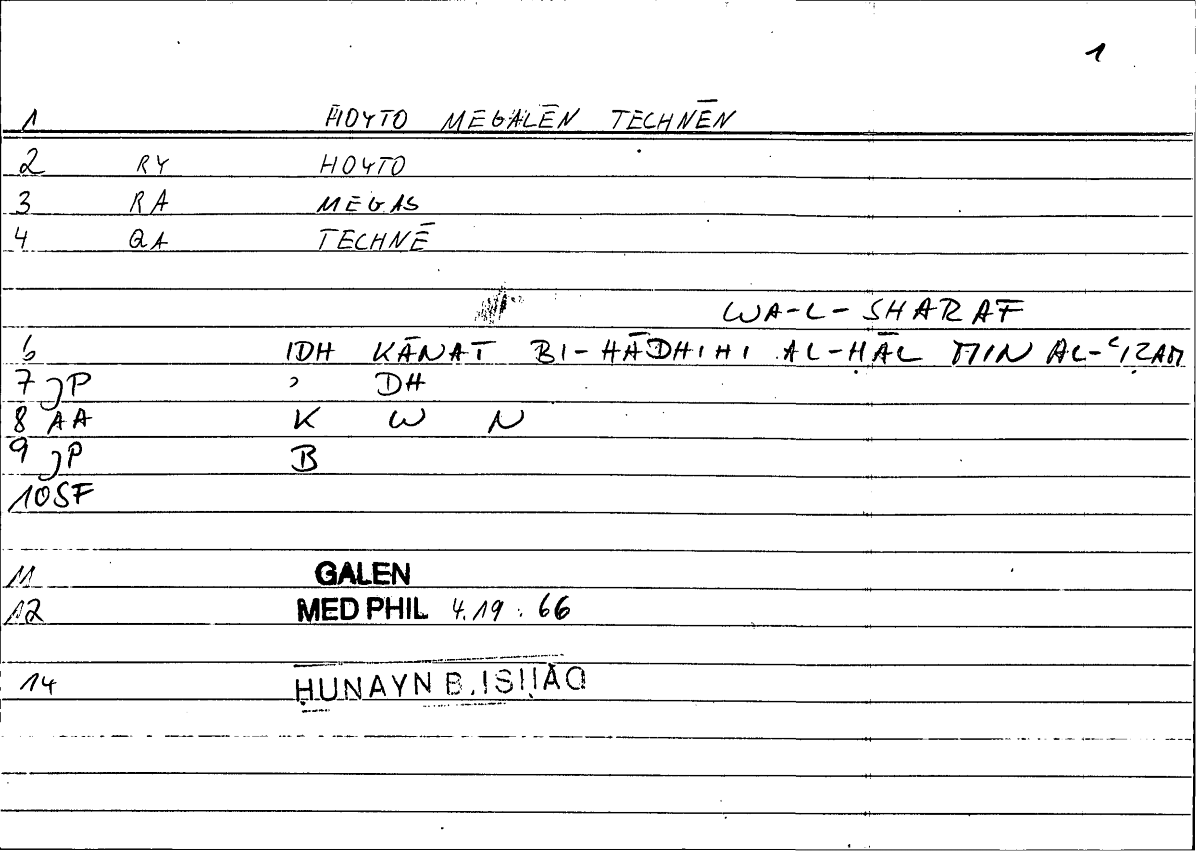 1
1 HOYTO MEGALĒN TECHNĒN
2 RY HOYTO
3 RA MEGAS
4 QA TECHNĒ
WA-L-SHARAF
6 IDH KĀNAT BI-HĀDHIHI AL-ḤĀL MIN AL-ʿIẒAM
7 JP ʾ DH
8 AA K W N
9 JP B
10 SF
11 GALEN
12 MED PHIL 4.19 : 66
14 ḤUNAYN B. ISḤĀQ